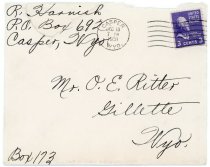 R. Harnish
P.O. Box 692
Casper, Wyo.
CASPER
WYO.
3 CENTS 3
Mr. O. E. Ritter
Gillette
Wyo.
Box 173